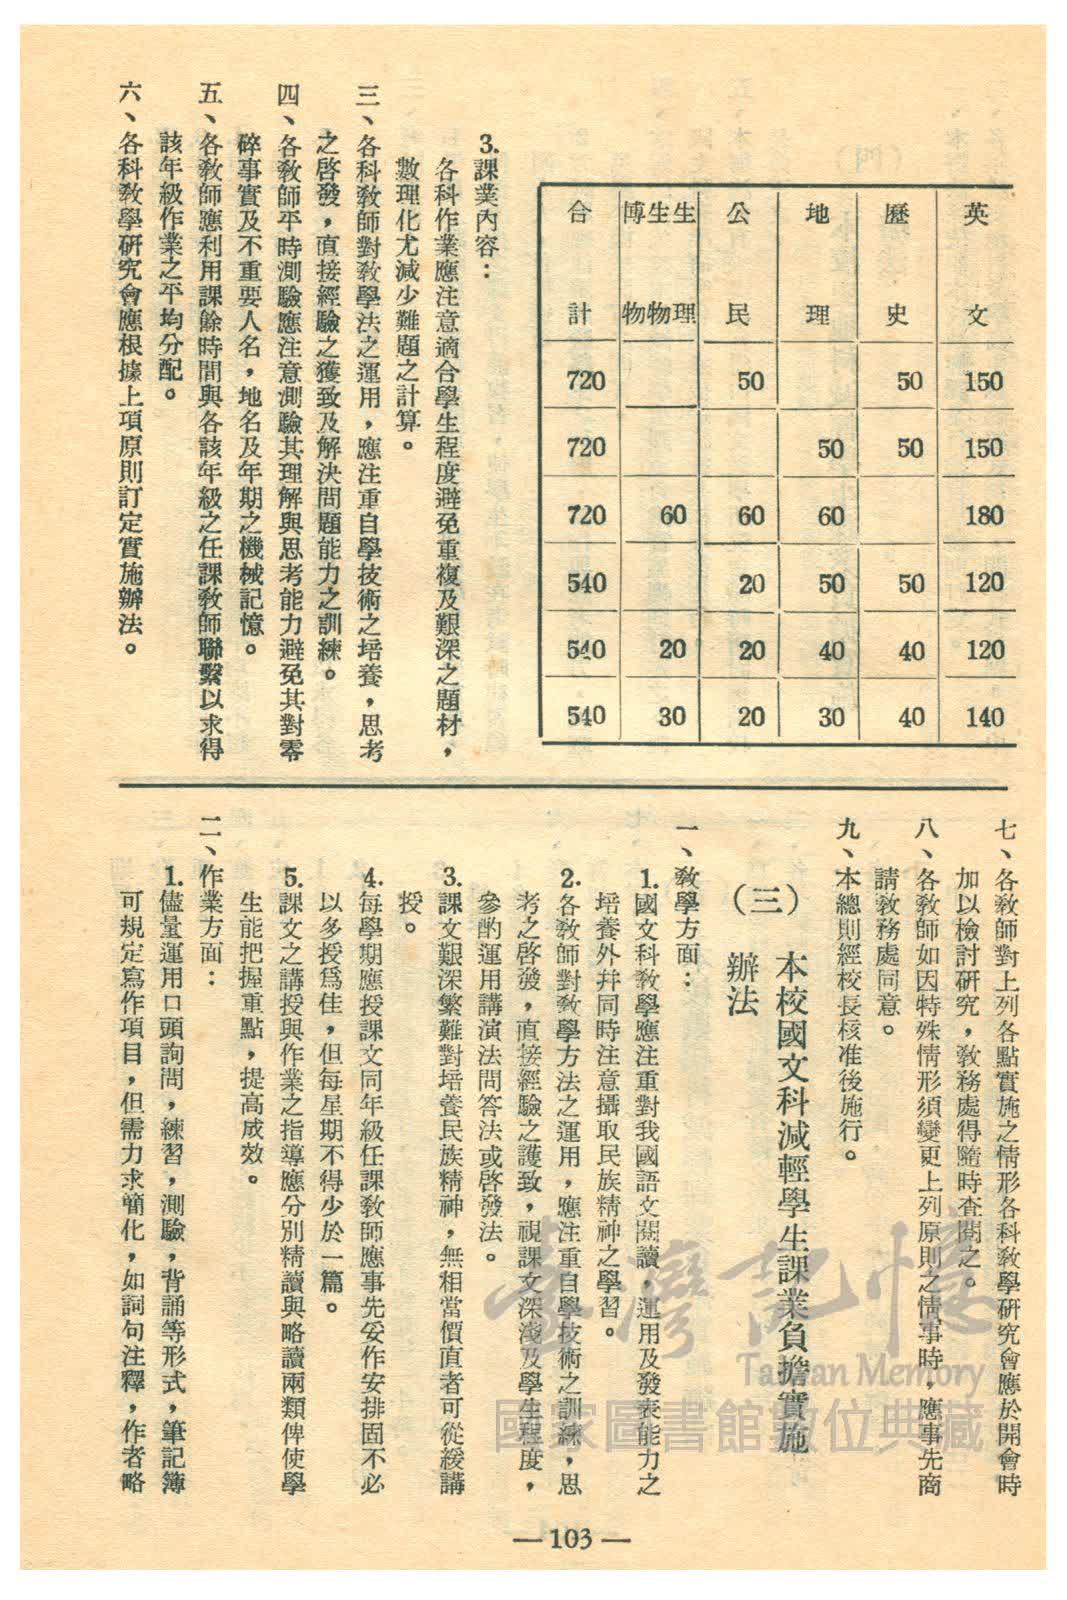 英文 150 150 180 120 120 140
歷史 50 50 50 40 40
地理 50 60 50 40 30
公民 50 60 20 20 20
博物 生物 生理 60 20 30
合計 720 720 720 540 540 540
3.課業內容：
各科作業應注意適合學生程度避免重複及艱深之題材，
數理化尤減少難題之計算。
三、各科教師對教學法之運用，應注重自學技術之培養，思考
之啓發，直接經驗之獲致及解決問題能力之訓練。
四、各教師平時測驗應注意測驗其理解與思考能力避免其對零
碎事實及不重要人名，地名及年期之機械記憶。
五、各教師應利用課餘時間與各該年級之任課教師聯繫以求得
該年級作業之平均分配。
六、各科教學研究會應根據上項原則訂定實施辦法。
七、各教師對上列各點實施之情形各科教學研究會應於開會時
加以檢討研究，教務處得隨時查閱之。
八、各教師如因特殊情形須變更上列原則之情事時，應事先商
請教務處同意。
九、本總則經校長核准後施行。
（三）本校國文科減輕學生課業負擔實施
辦法
一、教學方面：
1.國文科教學應注重對我國語文閱讀，運用及發表能力之
培養外幷同時注意攝取民族精神之學習。
2.各教師對教學方法之運用，應注重自學技術之訓練，思
考之啓發，直接經驗之護致，視課文深淺及學生程度，
參酌運用講演法問答法或啓發法。
3.課文艱深繁難對培養民族精神，無相當價直者可從緩講
授。
4.每學期應授課文同年級任課教師應事先妥作安排固不必
以多授爲佳，但每星期不得少於一篇。
5.課文之講授與作業之指導應分別精讀與略讀兩類俾使學
生能把握重點，提高成效。
二、作業方面：
1.儘量運用口頭詢問，練習，測驗，背誦等形式，筆記簿
可規定寫作項目，但需力求簡化，如詞句注釋，作者略
—103—
臺灣記憶
Taiwan Memory
國家圖書館數位典藏